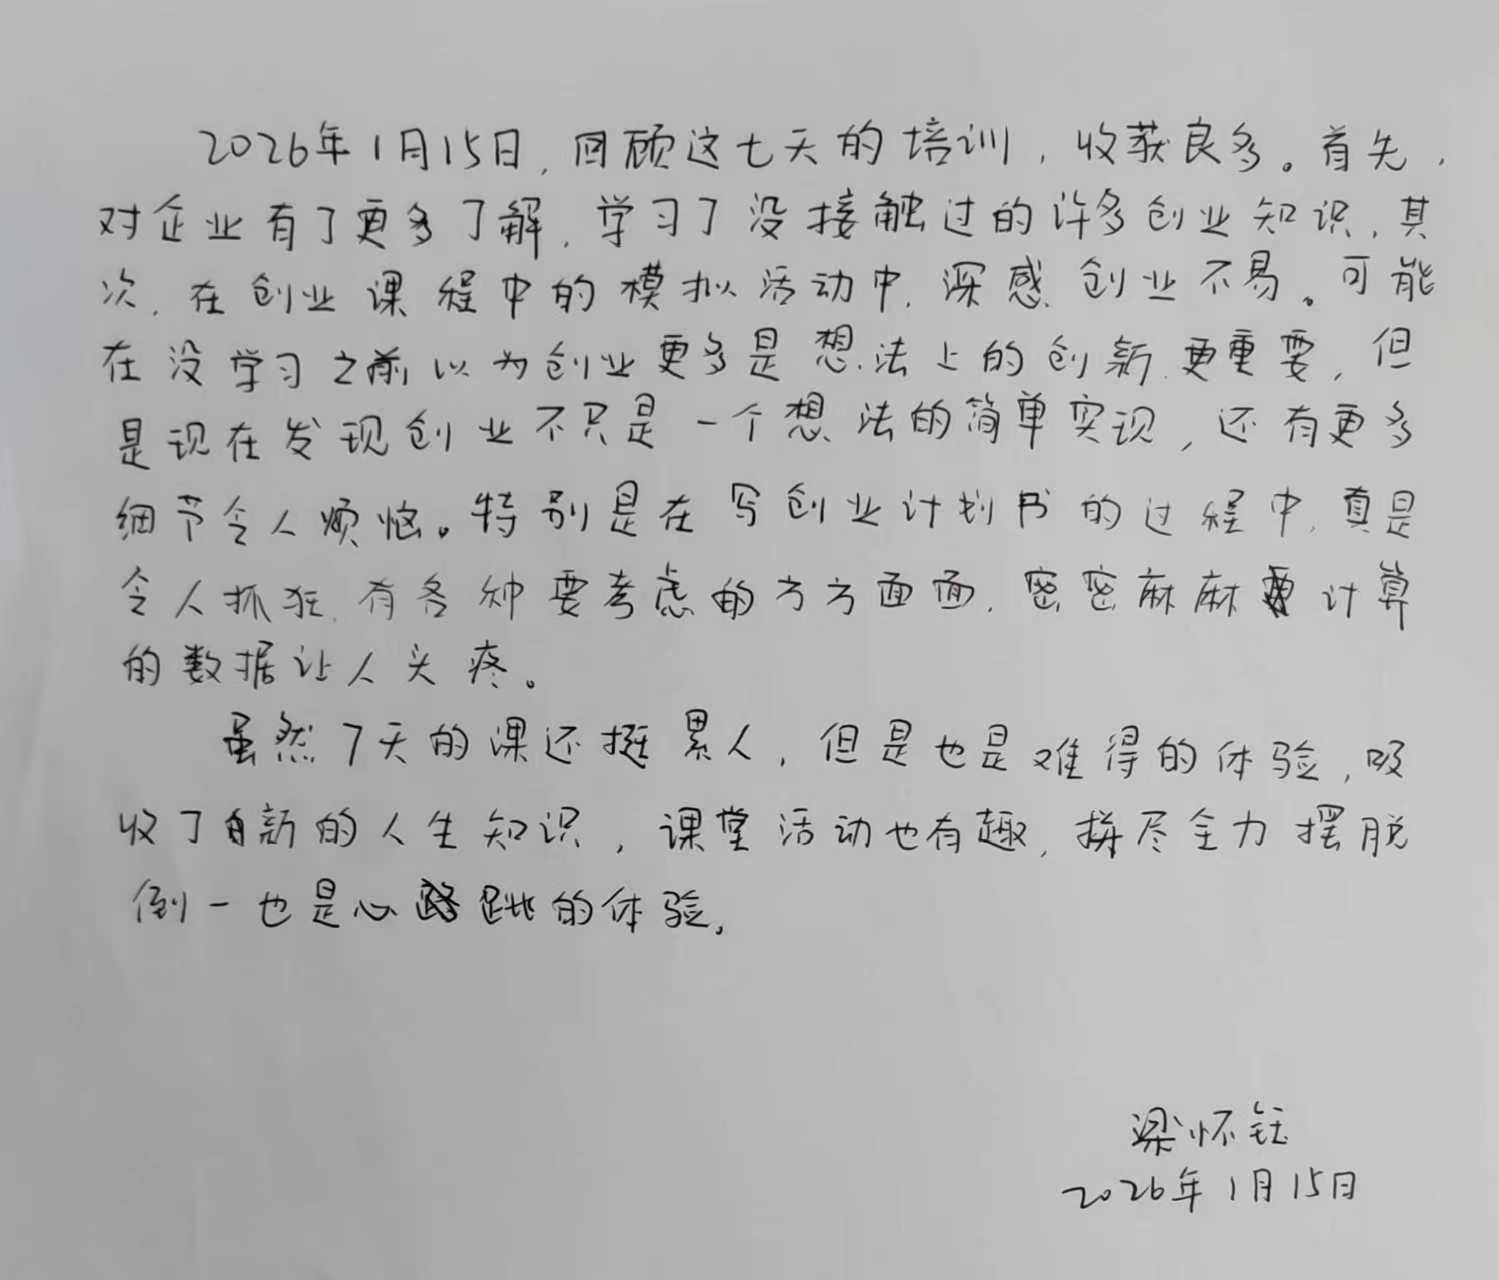 2026年1月15日，回顾这七天的培训，收获良多。首先，
对企业有了更多了解，学习了没接触过的许多创业知识，其
次，在创业课程中的模拟活动中，深感创业不易。可能
在没学习之前以为创业更多是想法上的创新更重要，但
是现在发现创业不只是一个想法的简单实现，还有更多
细节令人烦恼。特别是在写创业计划书的过程中，真是
令人抓狂，有各种要考虑的方方面面，密密麻麻要计算
的数据让人头疼。
虽然7天的课还挺累人，但是也是难得的体验，吸
收了新的人生知识，课堂活动也有趣，拼尽全力摆脱
倒一也是心跳的体验。
梁怀钰
2026年1月15日